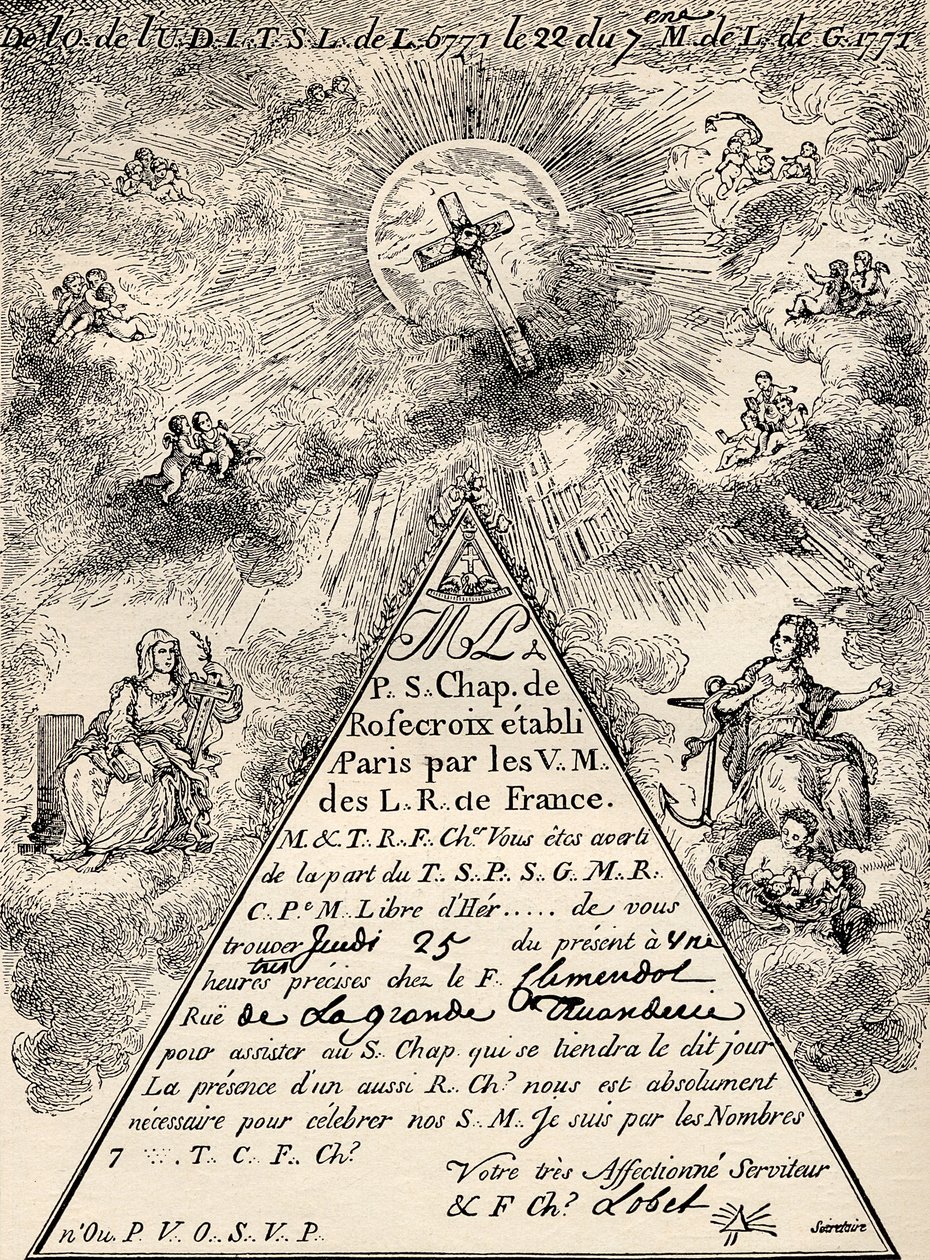 De l'O. de l'U.D.I.T.S.L. de L. 5771 le 22 du 7 eme M. de L. de G. 1771
M L
P. S. Chap. de
Rosecroix établi
A Paris par les V. M.
des L. R. de France.
M. & T. R. F. Ch.er Vous êtes averti
de la part du T. S. P. S. G. M. R.
C. P.e M. Libre d'Hér..... de vous
trouver Jeudi 25 du présent à 4
tres
heures précises chez le F.
Ruë de La grande
pour assister au S. Chap. qui se tiendra le dit jour
La présence d'un aussi R. Ch.r nous est absolument
nécessaire pour célebrer nos S. M. Je suis par les Nombres
7 . T. C. F. Ch.r
Votre très Affectionné Serviteur
& F Ch.r Lobet
Secretaire
n'Ou. P. V. O. S. V. P.